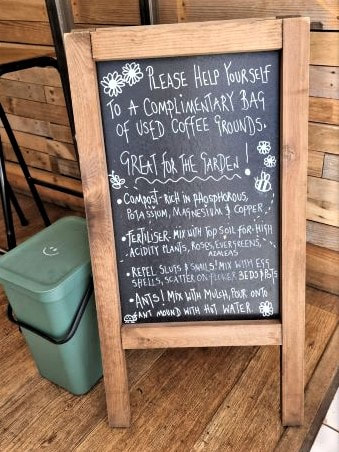 PLEASE HELP YOURSELF
TO A COMPLIMENTARY BAG
OF USED COFFEE GROUNDS.
GREAT FOR THE GARDEN!
• COMPOST-RICH IN PHOSPHOROUS,
POTASSIUM, MAGNESIUM & COPPER.
• FERTILISER-MIX WITH TOP SOIL FOR HIGH
ACIDITY PLANTS, ROSES, EVERGREENS,
AZALEAS
• REPEL SLUGS & SNAILS! MIX WITH EGG
SHELLS, SCATTER ON FLOWER BEDS & POTS
• ANTS! MIX WITH MULCH, POUR ONTO
ANT MOUND WITH HOT WATER.